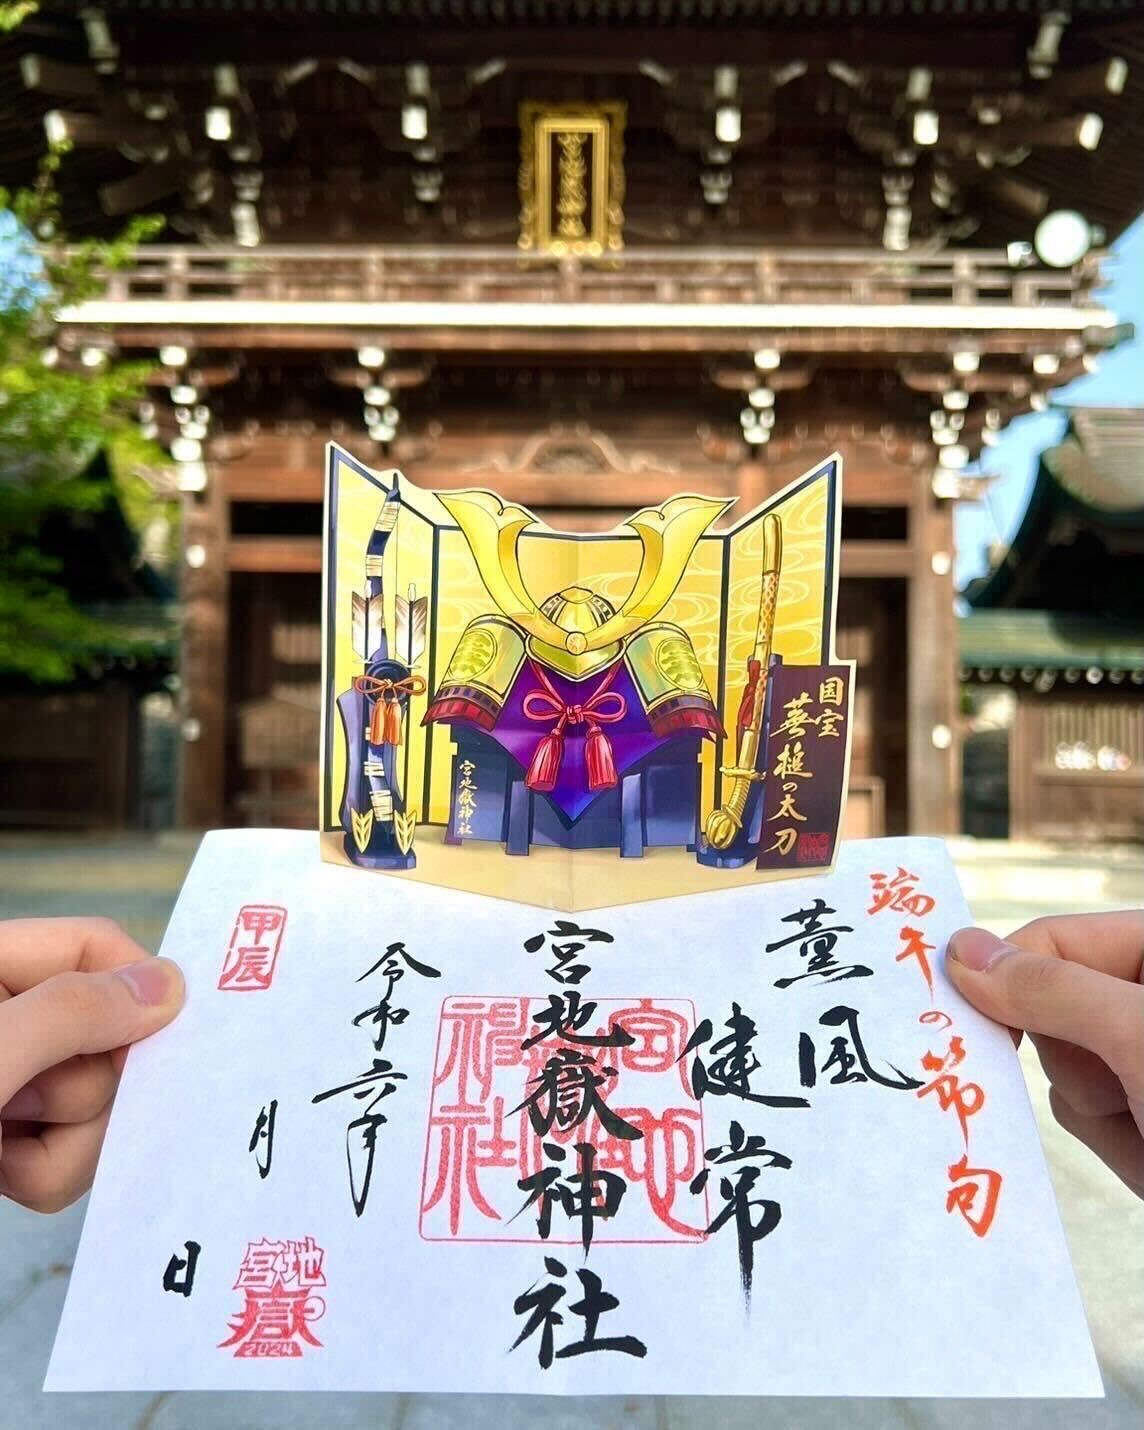 宮地嶽神社
国宝
藁槌の太刀
端午の節句
薫風
健常
宮地嶽神社
宮地
神社
令和六年
月
日
甲辰
宮地
嶽
2024